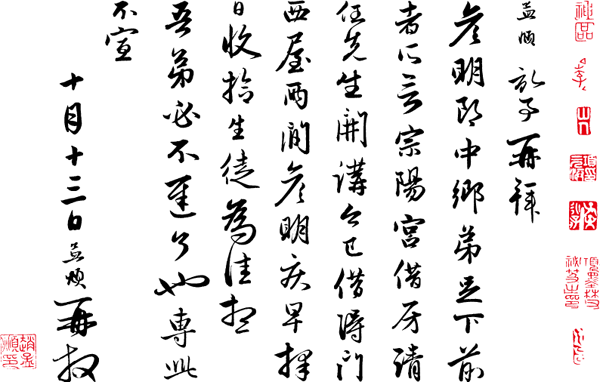 孟頫頓首再拜
彦明郎中鄉弟足下前
者所言宗陽宮借房請
任先生開講今已借得門
西屋兩間彦明疾早擇
日收拾生徒為佳想
吾弟必不遲了也專此
不宣
十月十三日孟頫再拜
趙孟頫印